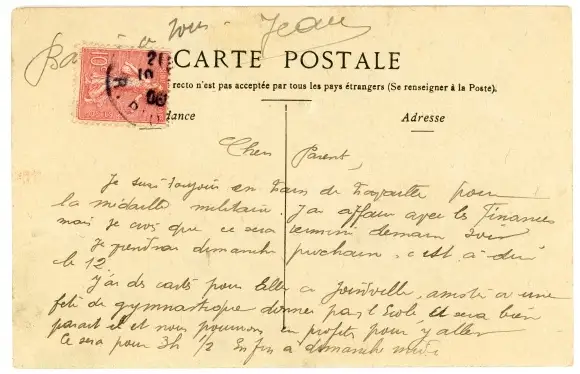 à vous. Jean
CARTE POSTALE
recto n'est pas acceptée par tous les pays étrangers (Se renseigner à la Poste).
dance Adresse
Chers Parent,
Je suis toujours en train de pour
la médaille militaire. J'ai affaire avec les Finances
mais je crois que ce sera terminé demain soir
Je prendrai dimanche prochain, c'est à dire
le 12
j'ai des cartes pour aller a Joinville, a une
fête de gymnastique donner par l'Ecole et sera bien
parait il et nous pourrons en profiter pour y aller
Ce sera pour 3h 1/2 Enfin à dimanche